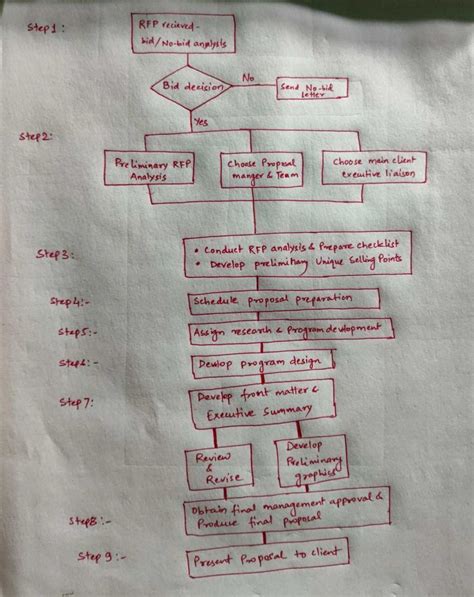 Step1:
RFP recieved-
bid/No-bid analysis
Bid decision
No
Send No-bid
letter
Yes
Step2:
Preliminary RFP
Analysis
Choose Proposal
manger & Team
Choose main client
executive liaison
Step3:
• Conduct RFP analysis & Prepare checklist
• Develop preliminary Unique Selling Points
Step4:-
Schedule proposal preparation
Step5:-
Assign research & Program devlopment
Step6:-
Devlop program design
Step 7:
Develop front matter &
Executive Summary
Review
&
Revise
Develop
Preliminary
graphics
Step8:-
Obtain final management approval &
Produce final proposal
Step 9:-
Present Proposal to client